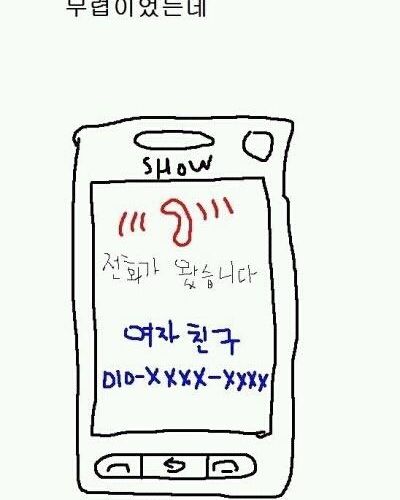 무렵이었는데
SHOW
전화가 왔습니다
여자친구
010-XXXX-XXXX